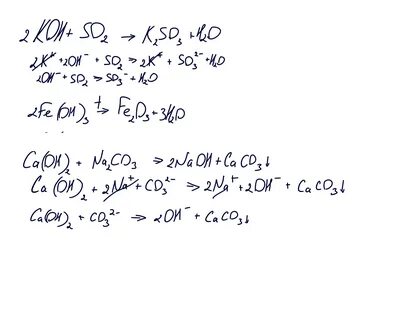 2KOH + SO₂ → K₂SO₃ + H₂O
2K⁺ + 2OH⁻ + SO₂ ⇒ 2K⁺ + SO₃²⁻ + H₂O
2OH⁻ + SO₂ ⇒ SO₃²⁻ + H₂O
2Fe(OH)₃ t→ Fe₂O₃ + 3H₂O
Ca(OH)₂ + Na₂CO₃ ⇒ 2NaOH + CaCO₃↓
Ca(OH)₂ + 2Na⁺ + CO₃²⁻ ⇒ 2Na⁺ + 2OH⁻ + CaCO₃↓
Ca(OH)₂ + CO₃²⁻ ⇒ 2OH⁻ + CaCO₃↓